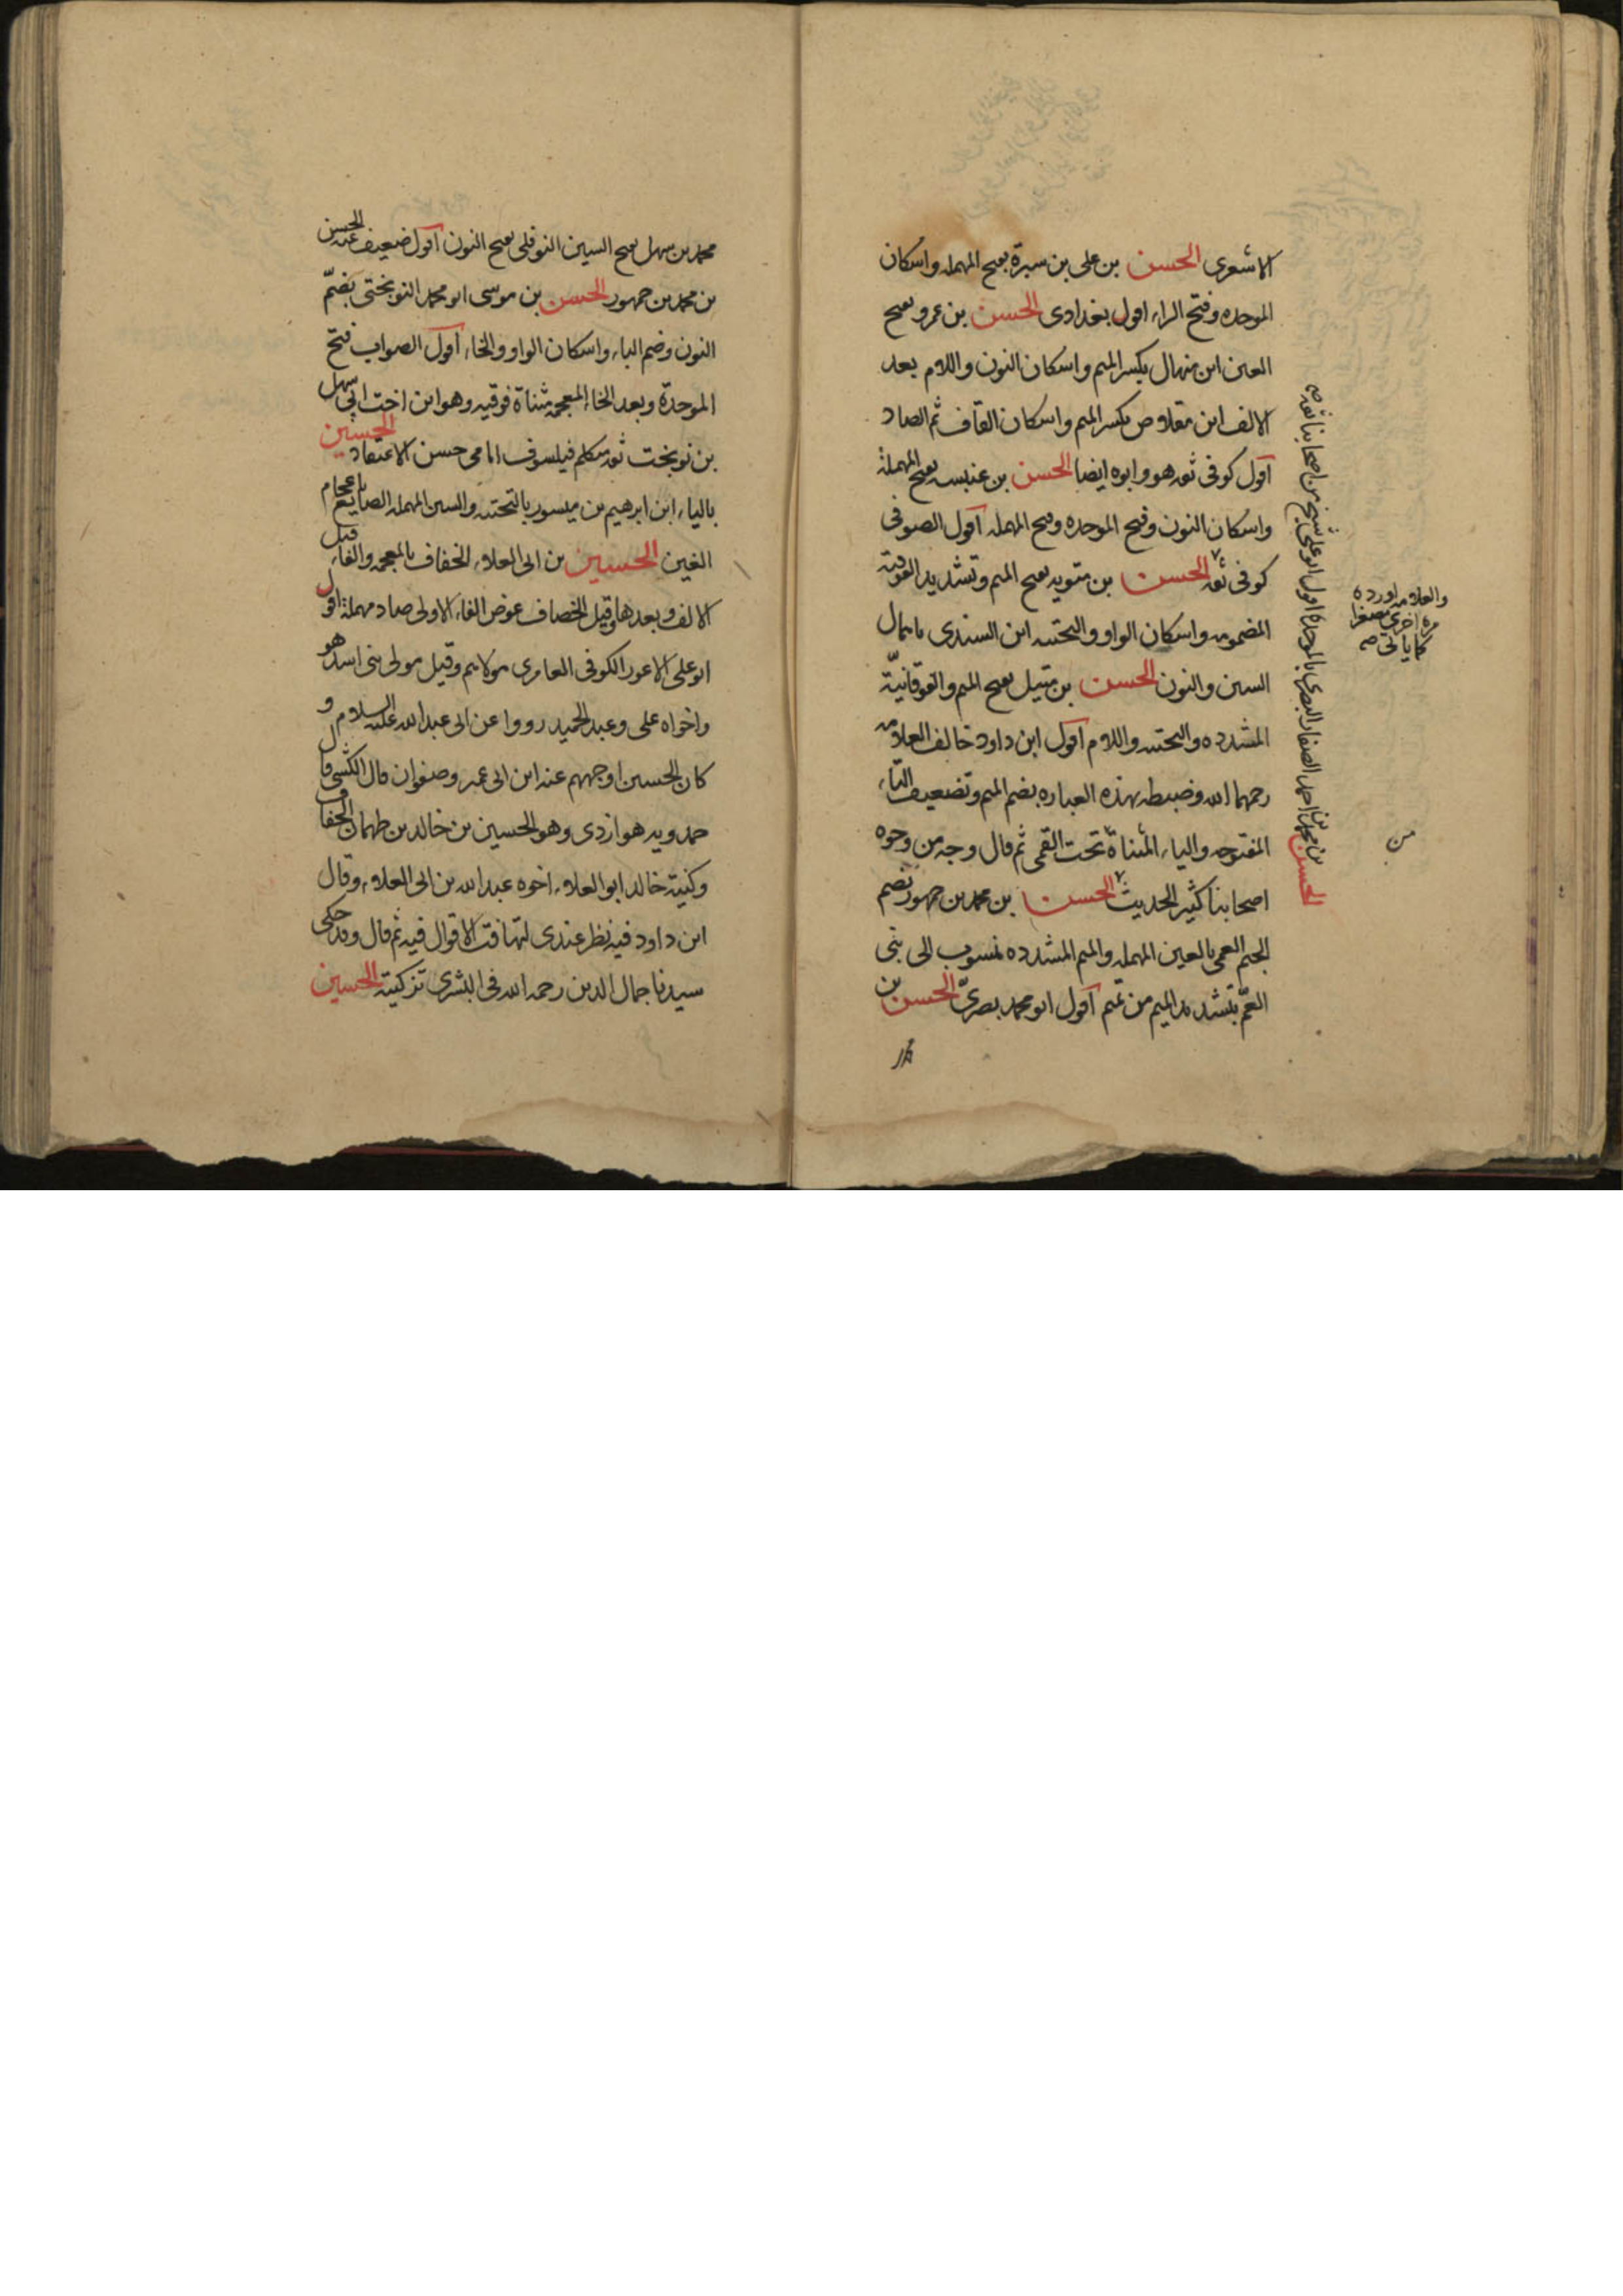 الاشعرى الحسن بن على بن سبرة بفتح المهمله واسكان
الموحده وفتح الراء اقول بغدادى الحسن بن عمرو بفتح
العين ابن منهال بكسر الميم واسكان النون واللام بعد
الالف ابن مقلاص بكسر الميم واسكان القاف ثم الصاد
اقول كوفى ثقه هو وابوه ايضا الحسن بن عنبسه بفتح المهملة
واسكان النون وفتح الموحده وفتح المهمله اقول الصوفى
كوفى ثقه الحسن بن متويه بفتح الميم وتشديد الفوقية
المضمومه واسكان الواو والتحتيه ابن السندى باهمال
السين والنون الحسن بن متيل بفتح الميم والفوقانيّة
المشدده والتحتيه واللام اقول ابن داود خالف العلامه
رحمهما الله وضبطه بهذه العباره بضم الميم وتضعيف التاء
المفتوحه والياء المثناة تحت القمى ثم قال وجه من وجوه
اصحابنا كثير الحديث الحسن بن محمد بن جمهور بضم
الجيم العمى بالعين المهمله والميم المشدده منسوب الى بنى
العمّ بتشديد الميم من تميم اقول ابو محمد بصرىّ الحسن بن
الحسن بن محمد بن احمد الصفار البصرى بالموحدة اقول ابو على شيخ من اصحابنا ثقة صه
والعلامه اورده
مرة اخرى مصغرا
كما ياتى صه
من
محمد بن سهل بفتح السين النوفلى بفتح النون اقول ضعيف عنه الحسن
بن محمد بن جمهور الحسن بن موسى ابو محمد النوبختى بضمّ
النون وضم الباء واسكان الواو والخاء اقول الصواب فتح
الموحدة وبعد الخاء المعجمه مثناة فوقيه وهو ابن اخت ابى سهل
بن نوبخت ثقه متكلم فيلسوف امامى حسن الاعتقاد الحسين
بالياء ابن ابرهيم بن ميسور بالتحتيه والسين المهمله الصايغ باعجام
الغين الحسين بن ابى العلاء الخفاف بالمعجمه والفاء قبل
الالف وبعدها وقيل الخصاف عوض الفاء الاولى صاد مهملة اقول
ابو على الاعور الكوفى العامرى مولاهم وقيل مولى بنى اسد هو
واخواه على وعبد الحميد رووا عن ابى عبد الله عليه السلام و
كان الحسين اوجههم عنه ابن ابى عمير وصفوان قال الكشى قال
حمدويه هو ازدى وهو الحسين بن خالد بن طهمان الخفاف
وكنية خالد ابو العلاء اخوه عبد الله بن ابى العلاء وقال
ابن داود فيه نظر عندى لتهافت الاقوال فيه ثم قال وقد حكى
سيدنا جمال الدين رحمه الله فى البشرى تزكيته الحسين